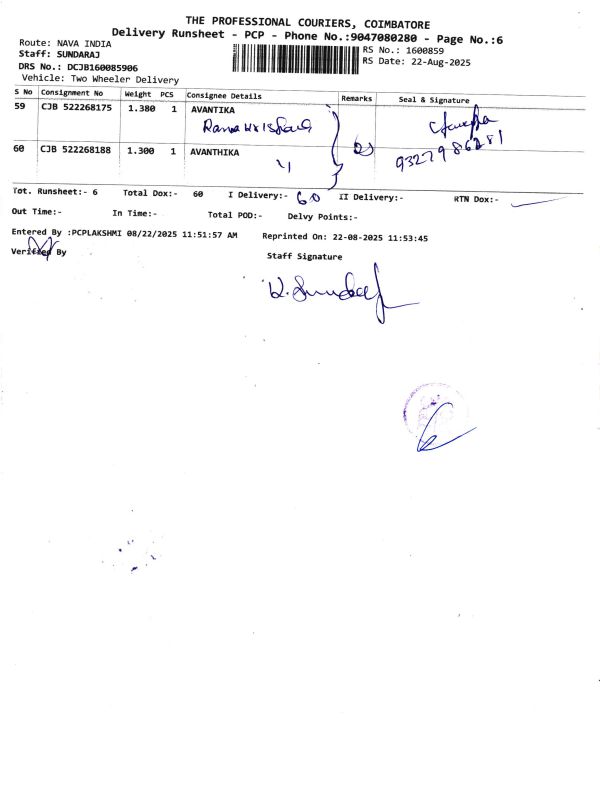 THE PROFESSIONAL COURIERS, COIMBATORE
Delivery Runsheet - PCP - Phone No.:9047080280 - Page No.:6
Route: NAVA INDIA
Staff: SUNDARAJ
DRS No.: DCJB160085906
Vehicle: Two Wheeler Delivery
RS No.: 1600859
RS Date: 22-Aug-2025
S No Consignment No Weight PCS Consignee Details Remarks Seal & Signature
59 CJB 522268175 1.380 1 AVANTIKA
60 CJB 522268188 1.300 1 AVANTHIKA
9327986281
Tot. Runsheet:- 6 Total Dox:- 60 I Delivery:- 60 II Delivery:- RTN Dox:-
Out Time:- In Time:- Total POD:- Delvy Points:-
Entered By :PCPLAKSHMI 08/22/2025 11:51:57 AM Reprinted On: 22-08-2025 11:53:45
Verified By Staff Signature